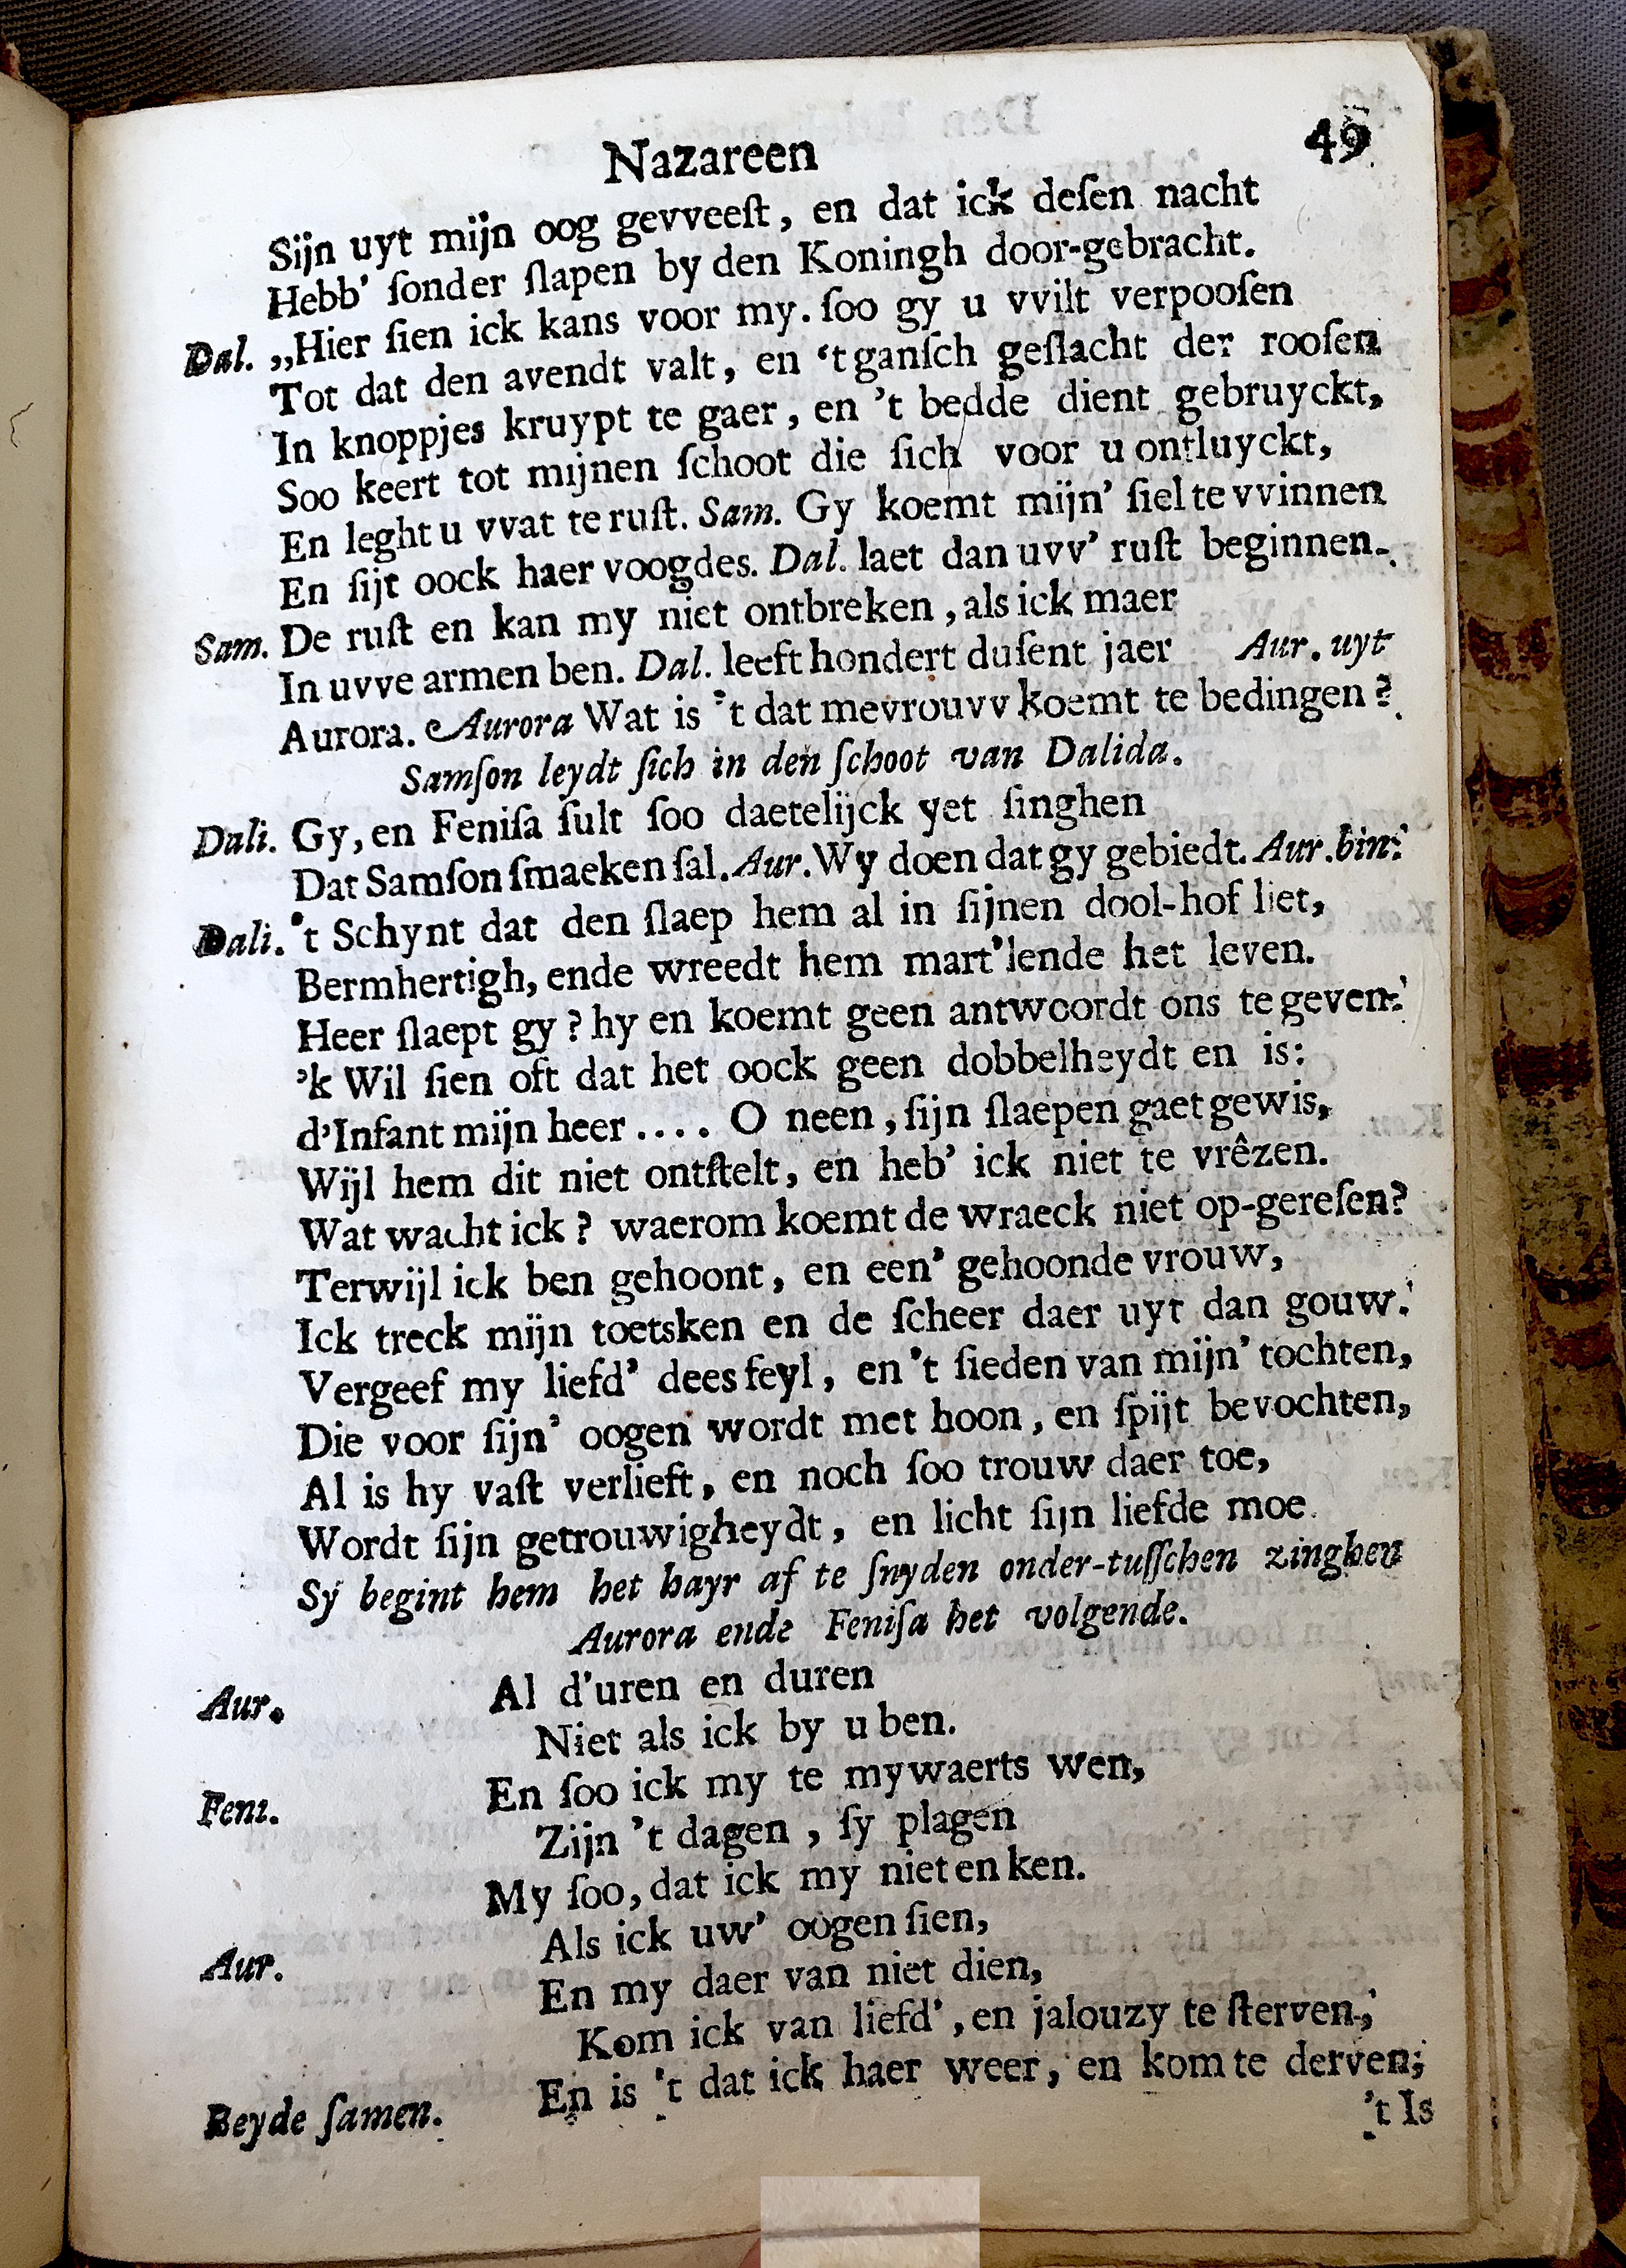 Nazareen 49
Sijn uyt mijn oog gevveeſt, en dat ick deſen nacht
Hebb' ſonder ſlapen by den Koningh door-gebracht.
Dal. „Hier ſien ick kans voor my. ſoo gy u vvilt verpooſen
Tot dat den avendt valt, en ‘t ganſch geſlacht der rooſen
In knoppjes kruypt te gaer, en 't bedde dient gebruyckt,
Soo keert tot mijnen ſchoot die ſich voor u ontluyckt,
En leght u vvat te ruſt. Sam. Gy koemt mijn' ſiel te vvinnen
En ſijt oock haer voogdes. Dal. laet dan uvv' ruſt beginnen.
Sam. De ruſt en kan my niet ontbreken, als ick maer
In uvve armen ben. Dal. leeft hondert duſent jaer Aur. uyt
Aurora. Aurora Wat is 't dat mevrouvv koemt te bedingen?
Samſon leydt ſich in den ſchoot van Dalida.
Dali. Gy, en Feniſa ſult ſoo daetelijck yet ſinghen
Dat Samſon ſmaeken ſal. Aur. Wy doen dat gy gebiedt. Aur. bin:
Dali. 't Schynt dat den ſlaep hem al in ſijnen dool-hof liet,
Bermhertigh, ende wreedt hem mart'lende het leven.
Heer ſlaept gy? hy en koemt geen antwoordt ons te geven:
'k Wil ſien oft dat het oock geen dobbelheydt en is:
d'Infant mijn heer .... O neen, ſijn ſlaepen gaet gewis,
Wijl hem dit niet ontſtelt, en heb' ick niet te vrêzen.
Wat wacht ick? waerom koemt de wraeck niet op-gereſen?
Terwijl ick ben gehoont, en een' gehoonde vrouw,
Ick treck mijn toetsken en de ſcheer daer uyt dan gouw.
Vergeef my liefd' dees feyl, en 't ſieden van mijn' tochten,
Die voor ſijn' oogen wordt met hoon, en ſpijt bevochten,
Al is hy vaſt verlieft, en noch ſoo trouw daer toe,
Wordt ſijn getrouwigheydt, en licht ſijn liefde moe.
Sy begint hem het hayr af te ſnyden onder-tuſſchen zinghen
Aurora ende Feniſa het volgende.
Aur. Al d'uren en duren
Niet als ick by u ben.
En ſoo ick my te mywaerts wen,
Feni. Zijn 't dagen, ſy plagen
My ſoo, dat ick my niet en ken.
Als ick uw' oogen ſien,
Aur. En my daer van niet dien,
Kom ick van liefd', en jalouzy te ſterven,
En is 't dat ick haer weer, en kom te derven;
Beyde ſamen. 't Is